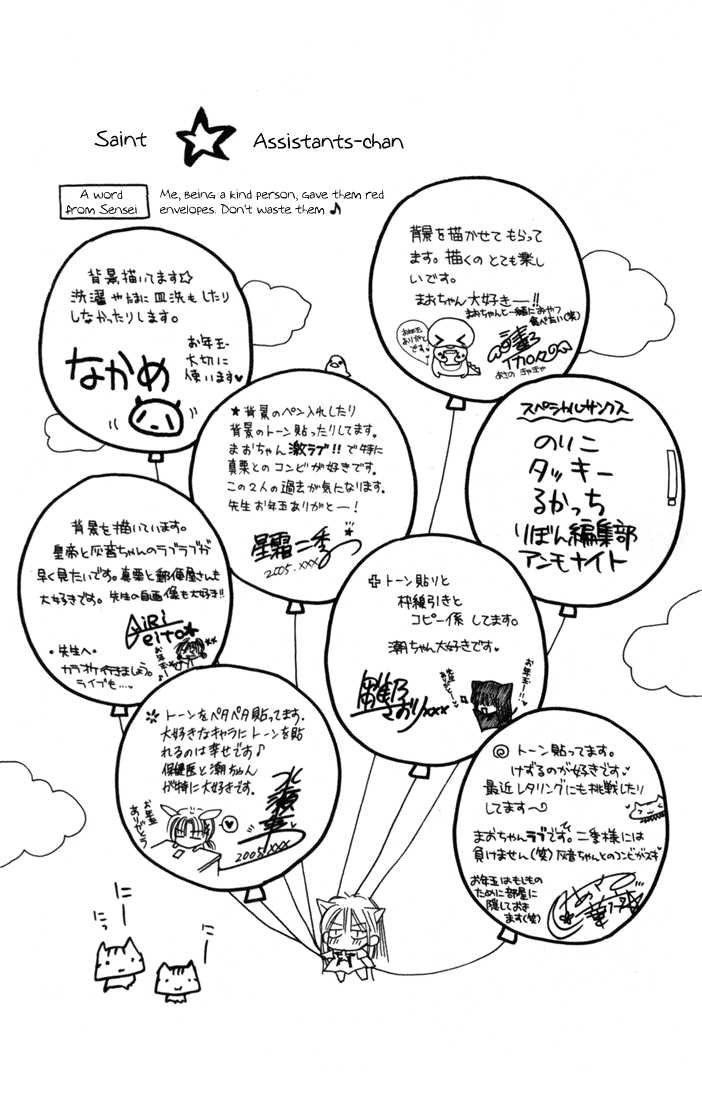 Saint ☆ Assistants-chan
A word
from Sensei
Me, being a kind person, gave them red
envelopes. Don't waste them ♪
背景を描かせてもらって
ます。描くのとても楽し
いです。
まおちゃん大好きー!!
まおちゃんと一緒におやつ
食べたい(笑)
お年玉
ありがとう
です。♥
背景描いてます☆
洗濯やたまに皿洗もしたり
しなかったりします。
なかめ
お年玉
大切に
使います♥
★背景のペン入れしたり
背景のトーン貼ったりしてます。
まおちゃん激ラブ!!で特に
真栗とのコンビが好きです。
この2人の過去が気になります。
先生お年玉ありがとー!
星霜二季
2005.xxx
スペシャルサンクス
のりこ
タッキー
るかっち
りぼん編集部
アンモナイト
背景を描いています。
皇帝と灰音ちゃんのラブラブが
早く見たいです。真栗と郵便屋さんも
大好きです。先生の自画像も大好き!!
AiRi
eito★
・先生へ・
カラオケ行きましょう。
ライブも…♥
トーン貼りと
枠線引きと
コピー係してます。
潮ちゃん大好きです♥
さおりxxx
お年玉ー!!♥
トーンをペタペタ貼ってます。
大好きなキャラにトーンを貼
れるのは幸せです♪
保健医と潮ちゃん
が特に大好きです。
お年玉
ありがとう
2005.xxx
◎トーン貼ってます。
けずるのが好きです♥
最近レタリングにも挑戦したり
してます〜
まおちゃんラブです。二季様には
負けません(笑)灰音ちゃんとのコンビがスキ
お年玉はもしもの
ために部屋に
隠しておき
ます(笑)
にー
にっ
にー